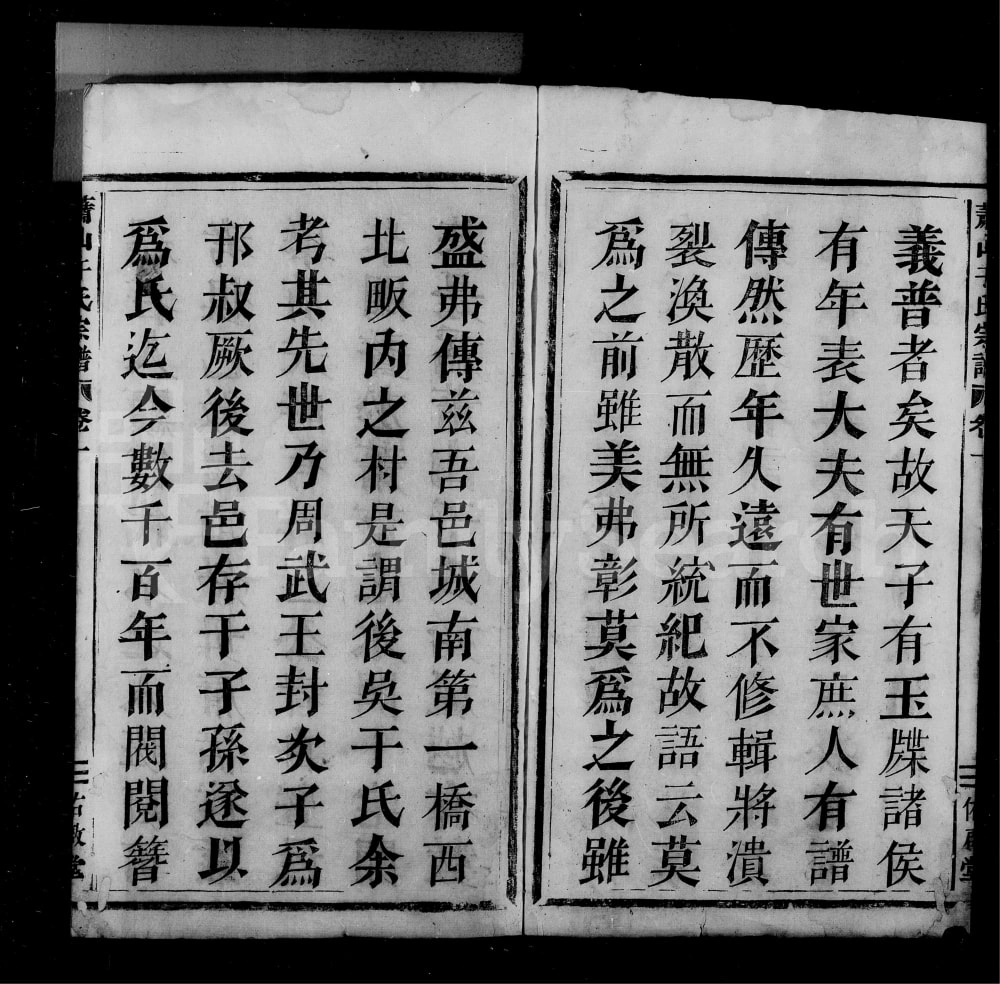 義普者矣故天子有玉牒諸侯
有年表大夫有世家庶人有譜
傳然歷年久遠而不修輯將潰
裂渙散而無所統紀故語云莫
爲之前雖美弗彰莫爲之後雖
盛弗傳兹吾邑城南第一橋西
北畈内之村是謂後吳于氏余
考其先世乃周武王封次子爲
邘叔厥後去邑存于子孫遂以
爲氏迄今數千百年而閥閱簪
蕭山于氏宗譜 卷一
二
佑啟堂
FamilySearch